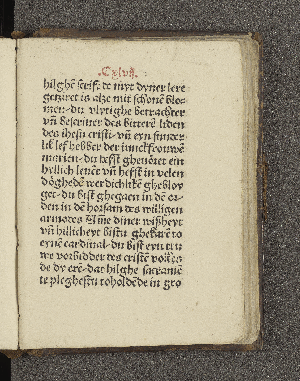 Cxlvij.
hilghē scrift de myt dyner lere
getziret is alze mit schonē blo-
men: du vlytighe betrachter
vn̄ bescriuer des bitterē liden
des ihesu cristi: vn̄ eyn sunder-
lik lef hebber der iunckfrouwē
marien: du hefst ghevoret ein
hillich leuēt vn̄ hefst in velen
dogheden werdichlikē ghebloy
get: du bist ghegaen in dē or-
den in dē horsam des willigen
armodes Vme diner wißheyt
vn̄ hillicheyt bistu ghekarē to
eynē cardinal: du bist eyn tru
we vorbidder des cristē volkes
de dy erē: dat hilghe sacramē
te pleghestu toholdēde in gro